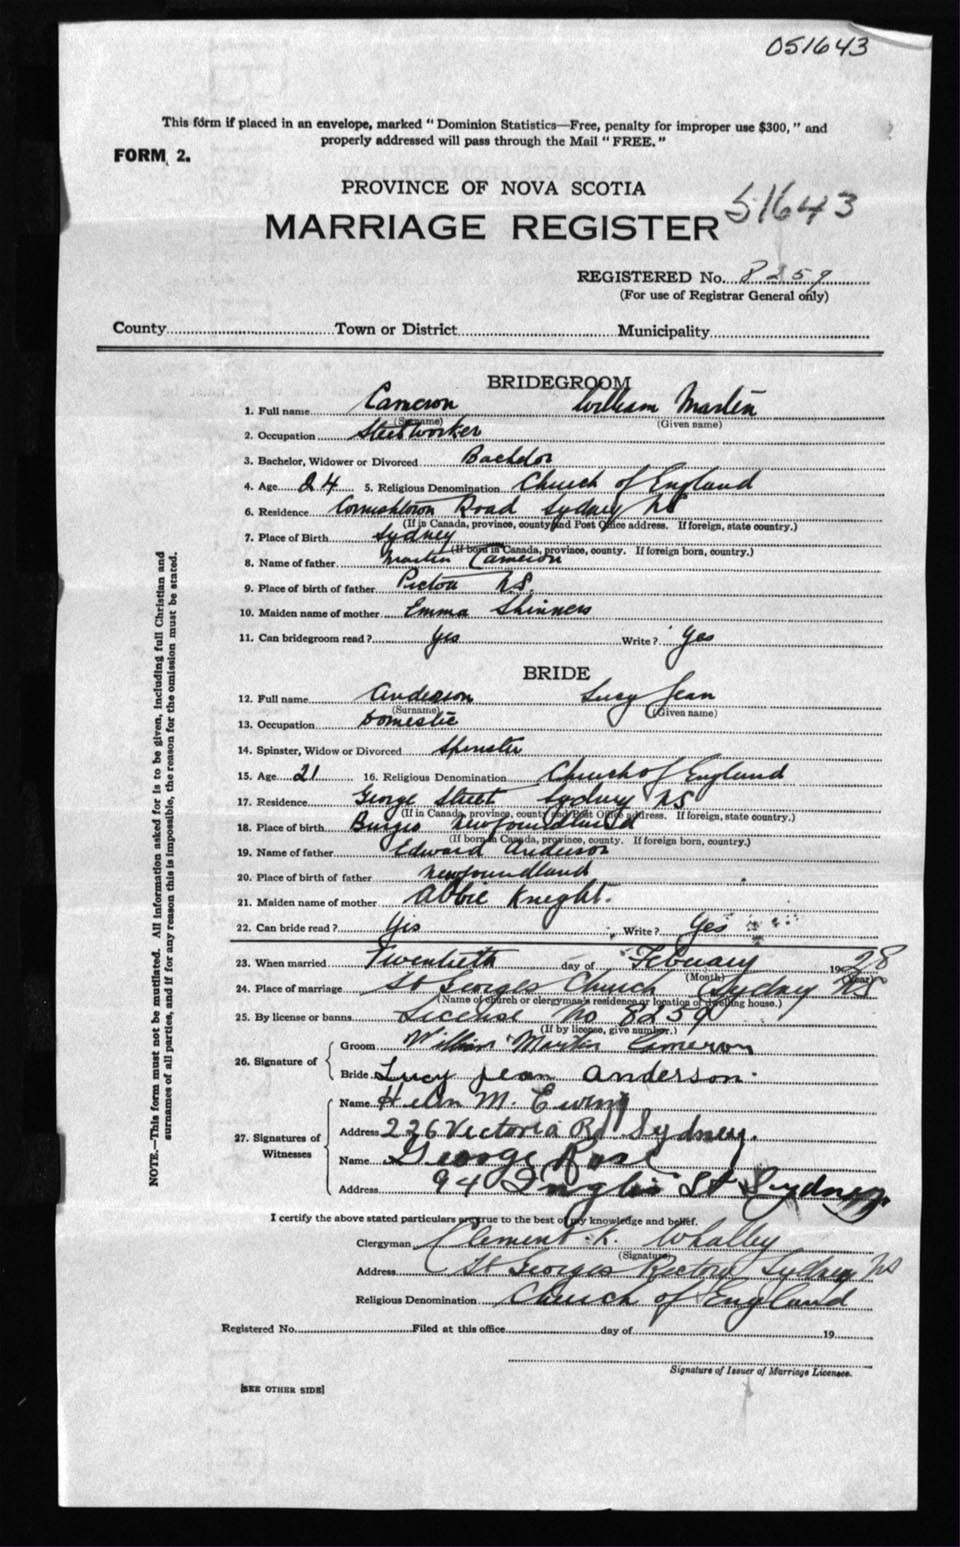 051643
This form if placed in an envelope, marked "Dominion Statistics—Free, penalty for improper use $300," and
properly addressed will pass through the Mail "FREE."
FORM 2.
PROVINCE OF NOVA SCOTIA
51643
MARRIAGE REGISTER
REGISTERED No. 8259
(For use of Registrar General only)
County Town or District Municipality
BRIDEGROOM
1. Full name Cameron William Martin
(Surname) (Given name)
2. Occupation Steelworker
3. Bachelor, Widower or Divorced Bachelor
4. Age 24 5. Religious Denomination Church of England
6. Residence Cornishtown Road Sydney NS
(If in Canada, province, county and Post Office address. If foreign, state country.)
7. Place of Birth Sydney
(If born in Canada, province, county. If foreign born, country.)
8. Name of father Martin Cameron
9. Place of birth of father Pictou NS.
10. Maiden name of mother Emma Shinners
11. Can bridegroom read? Yes Write? Yes
BRIDE
12. Full name Anderson Lucy Jean
(Surname) (Given name)
13. Occupation Domestic
14. Spinster, Widow or Divorced Spinster
15. Age 21 16. Religious Denomination Church of England
17. Residence George Street Sydney NS
(If in Canada, province, county and Post Office address. If foreign, state country.)
18. Place of birth Burgeo Newfoundland
(If born in Canada, province, county. If foreign born, country.)
19. Name of father Edward Anderson
20. Place of birth of father Newfoundland
21. Maiden name of mother Abbie Knight.
22. Can bride read? Yes Write? Yes
23. When married Twentieth day of February 1928
(Month) (Year)
24. Place of marriage St Georges Church Sydney NS
(Name of church or clergyman's residence or location of dwelling house.)
25. By license or banns License No 8259
(If by license, give number.)
26. Signature of Groom William Martin Cameron
Bride Lucy Jean Anderson.
27. Signatures of Witnesses
Name Helen M. Ewing
Address 226 Victoria Rd Sydney.
Name George Rose
Address 94 Inglis St Sydney.
I certify the above stated particulars are true to the best of my knowledge and belief.
Clergyman Clement K. Whalley
(Signature)
Address St Georges Rectory Sydney NS
Religious Denomination Church of England
Registered No. Filed at this office day of 19
Signature of Issuer of Marriage Licenses.
[SEE OTHER SIDE]
NOTE.—This form must not be mutilated. All information asked for is to be given, including full Christian and
surnames of all parties, and if for any reason this is impossible, the reason for the omission must be stated.